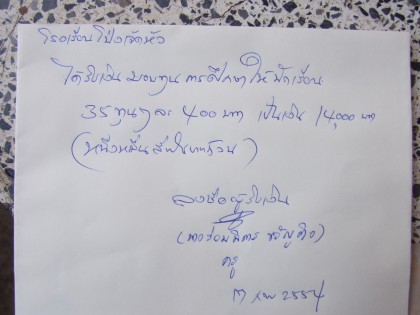 โรงเรียนโป่งเจ็ดหัว
ได้รับเงิน มอบทุน การศึกษา ให้ นักเรียน
35 ทุนๆ ละ 400 บาท เป็นเงิน 14,000 บาท
(หนึ่งหมื่นสี่พันบาทถ้วน)
ลงชื่อผู้รับเงิน
ครู
2554